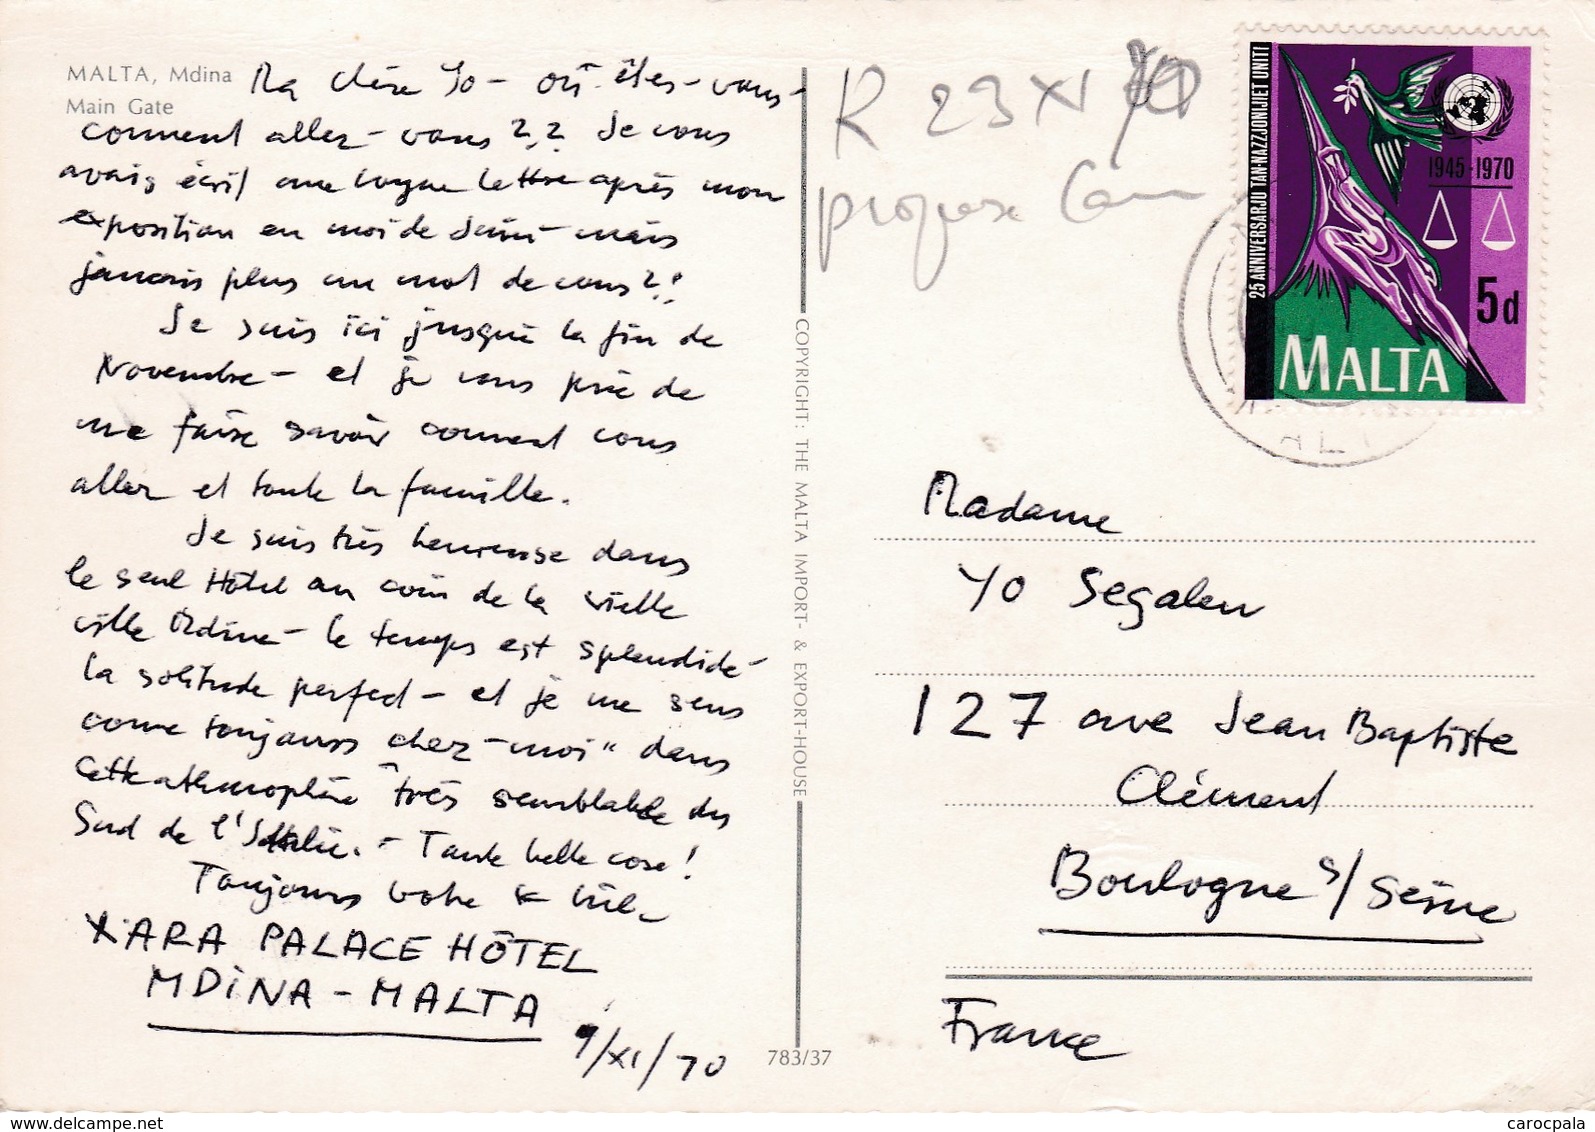 MALTA, Mdina
Main Gate
Ma chère Yo - où-êtes-vous -
comment allez-vous ?? Je vous
avais écrit une longue lettre après mon
exposition en moi de Juin - mais
jamais plus un mot de vous ?!
Je suis ici jusque la fin de
Novembre - et je vous prie de
me faire savoir comment vous
allez et toute la famille.
Je suis très heureuse dans
le seul Hôtel au coin de la vielle
ville Mdina - le temps est splendide -
la solitude perfect - et je me sens
come toujours "chez-moi" dans
cette athmosphère très semblable du
Sud de l'Italie. - Tante belle cose!
Toujours votre
XARA PALACE HÔTEL
MDINA - MALTA
9/XI/70
COPYRIGHT: THE MALTA IMPORT- & EXPORT-HOUSE
783/37
R 23 XI 70
propose
25 ANNIVERSARJU TAN-NAZZJONIJIET UNITI
1945-1970
5d
MALTA
Madame
Yo Segalen
127 ave Jean Baptiste
Clément
Boulogne s/Seine
France
www.delcampe.net
carocpala